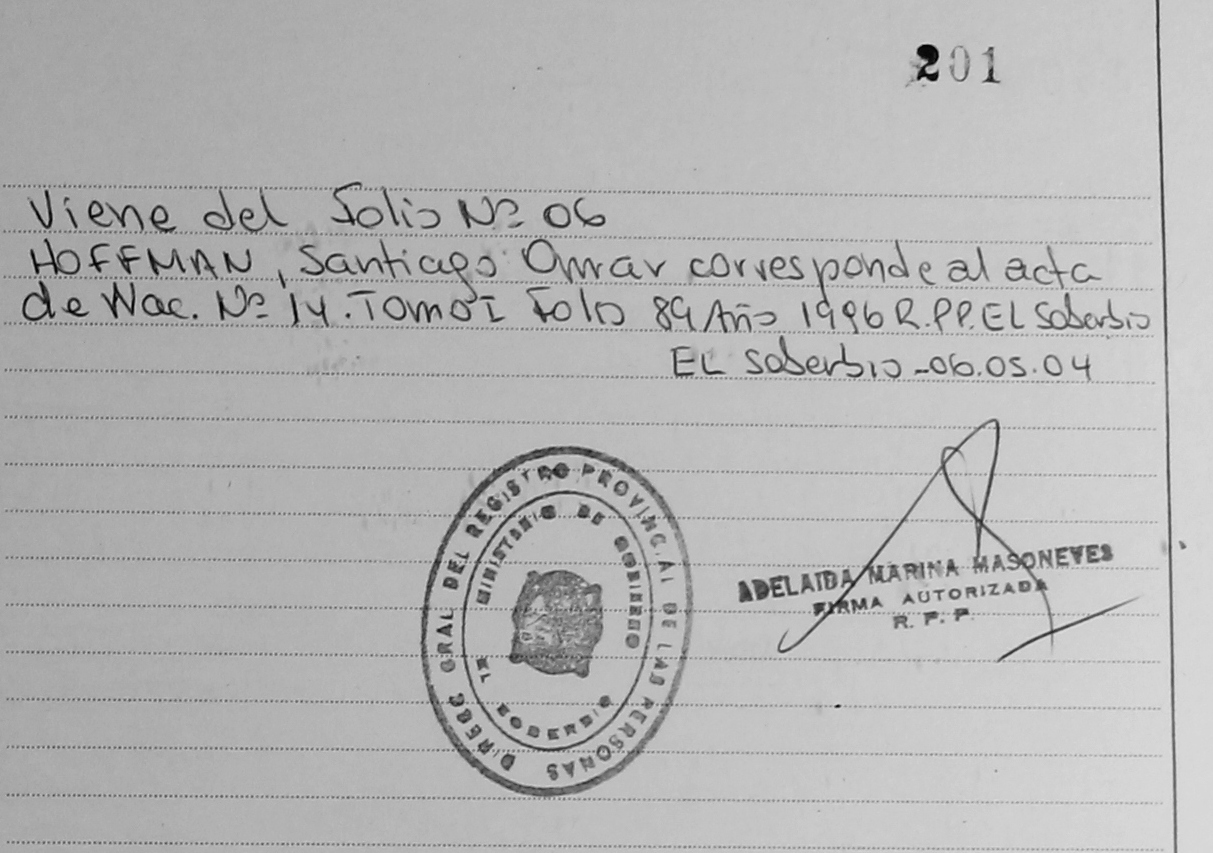 201
Viene del Folio Nº 06
HOFFMAN, Santiago Omar corresponde al acta
de Nac. Nº 14. Tomo I Folio 89 Año 1996 R.P.P. EL Soberbio
EL Soberbio - 06.05.04
DIRECC GRAL DEL REGISTRO PROVINCIAL DE LAS PERSONAS
MINISTERIO DE GOBIERNO
EL SOBERBIO
ADELAIDA MARINA MASONEVES
FIRMA AUTORIZADA
R. P. P.